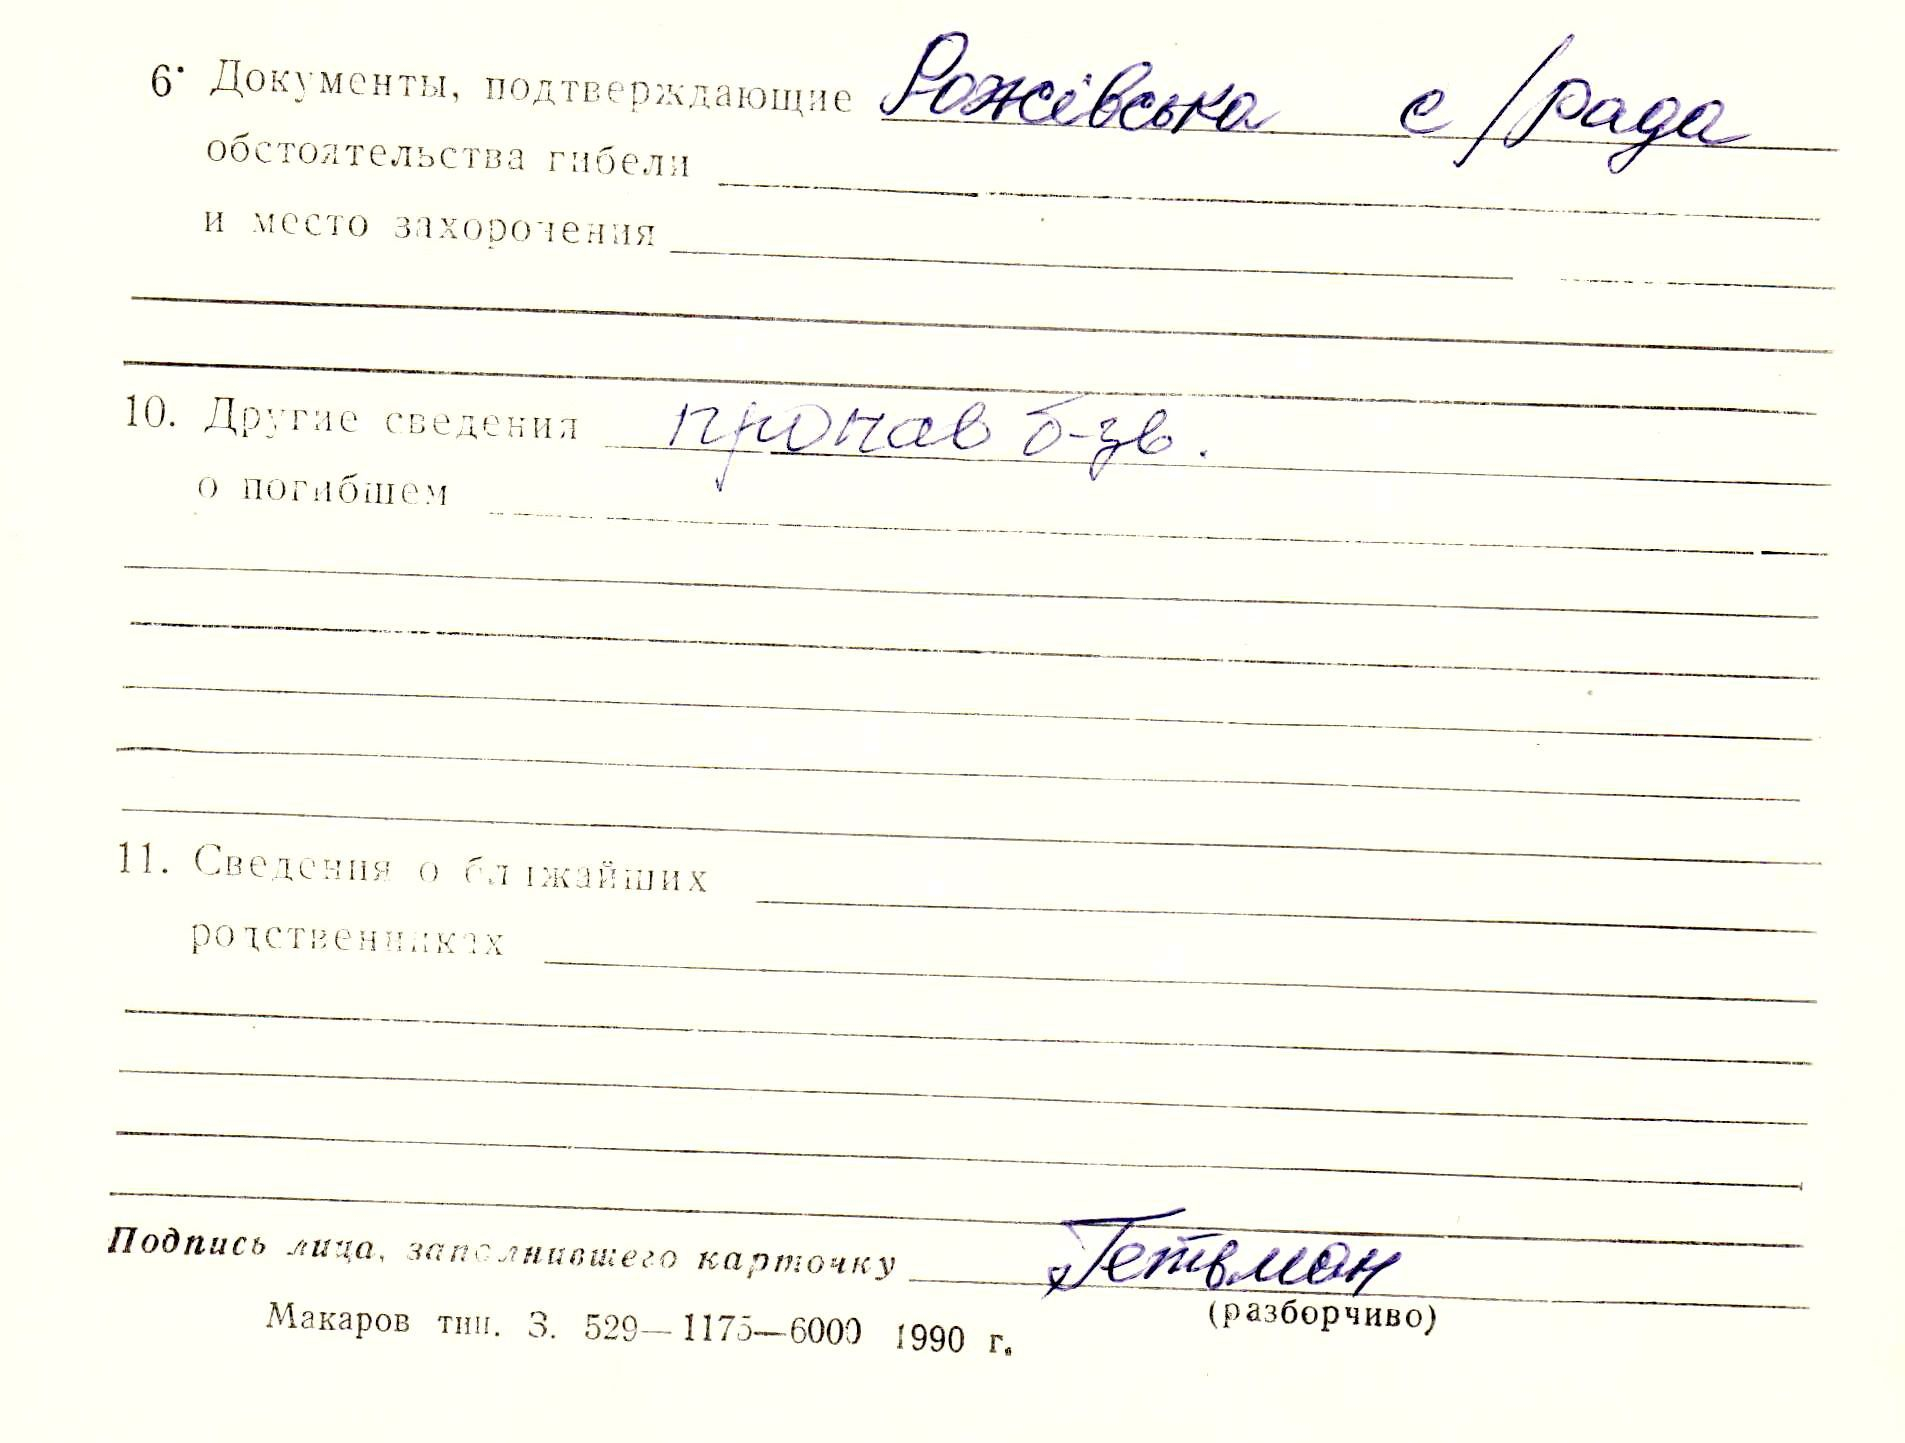 6. Документы, подтверждающие Рожівська с/рада
обстоятельства гибели
и место захоронения
10. Другие сведения пропав б-зв.
о погибшем
11. Сведения о ближайших
родственниках
Подпись лица, заполнившего карточку Гетьман
(разборчиво)
Макаров тип. З. 529—1175—6000 1990 г.